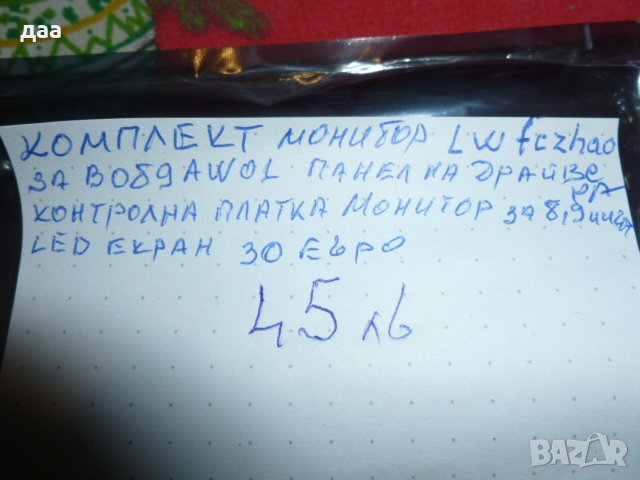 даа
КОМПЛЕКТ МОНИТОР LWfczhao
ЗА B089AW01 ПАНЕЛ НА ДРАЙВЕ
РА
КОНТРОЛНА ПЛАТКА МОНИТОР ЗА 8,9 инча
LED ЕКРАН 30 ЕВРО
45 лв
BAZAR